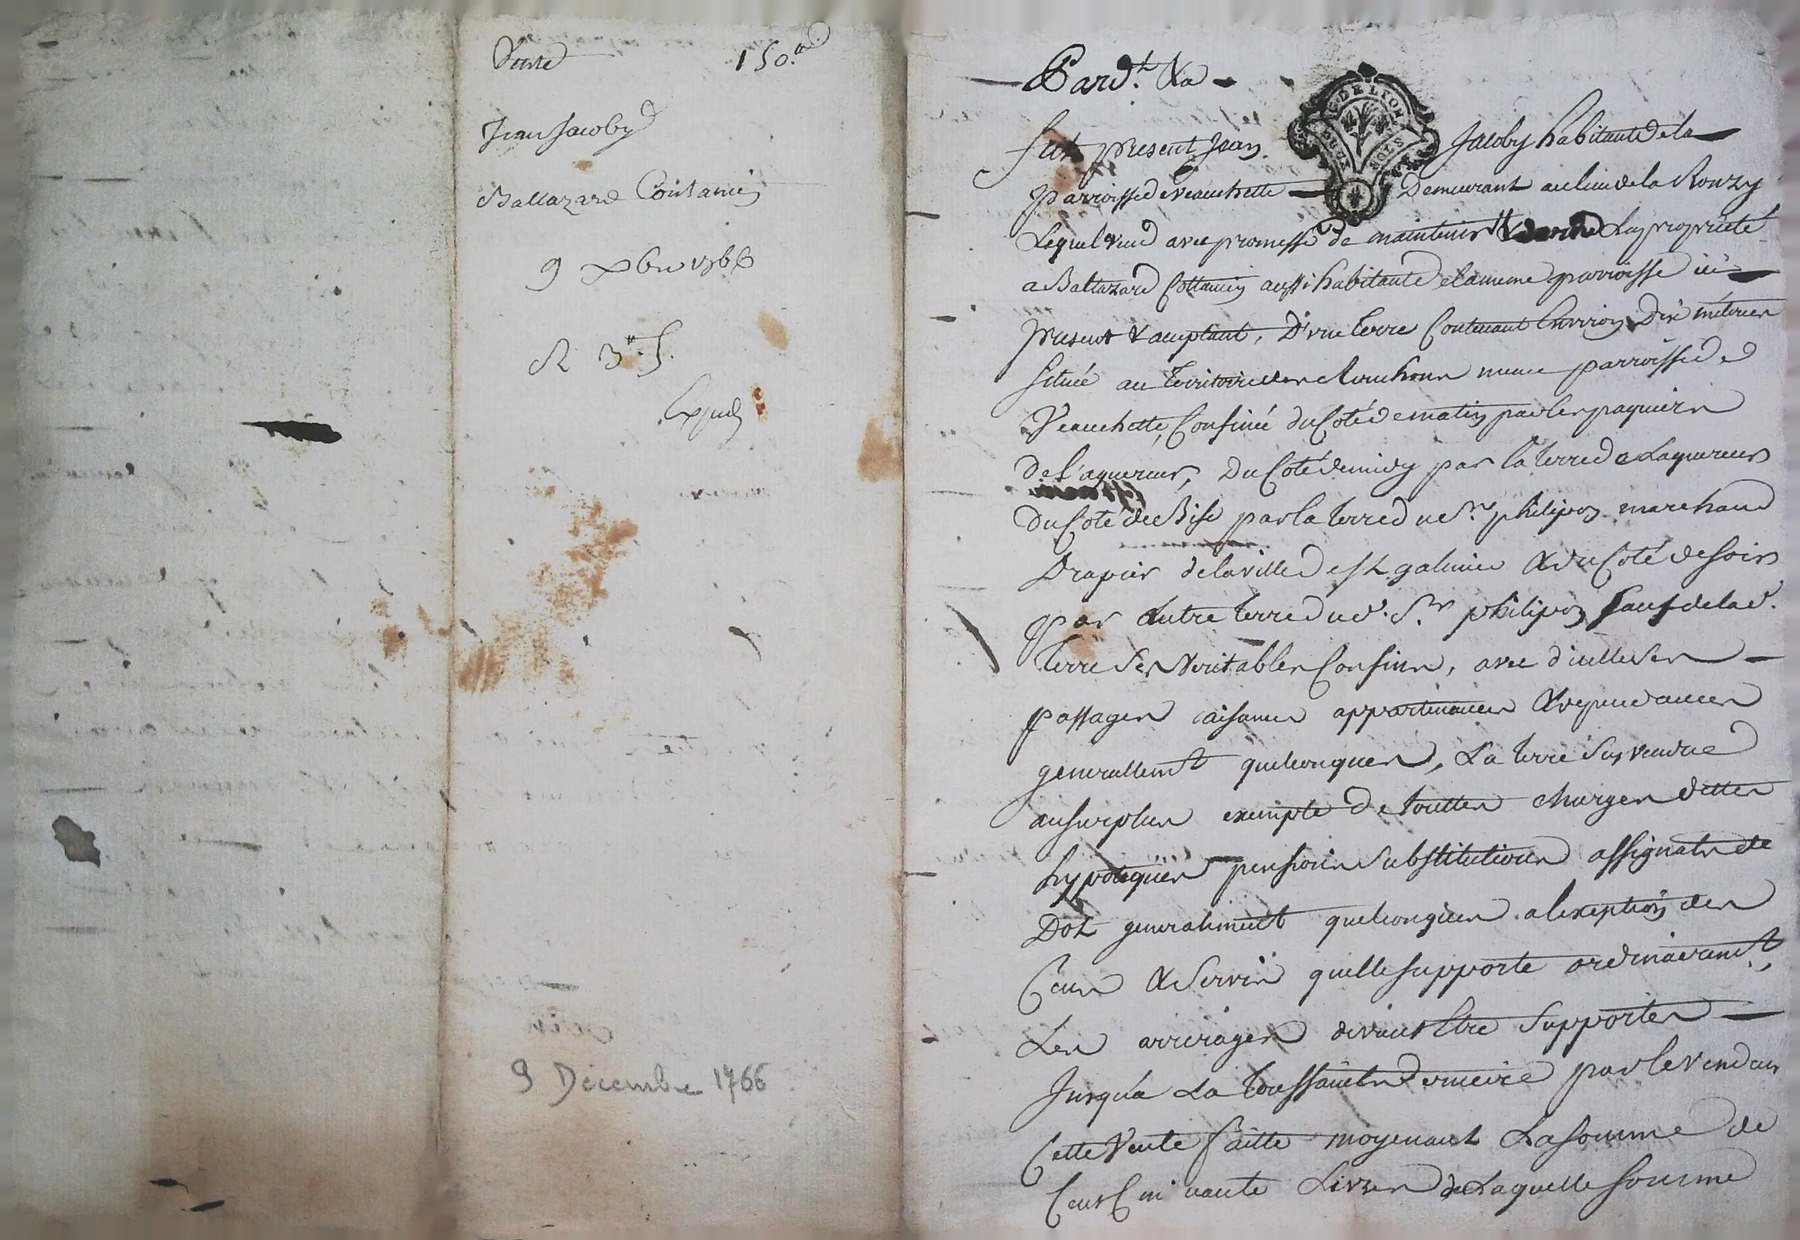 Vente 150.tt
Jean Jacoby
Baltazard Coutanci
9 xbre 1766
R 3.tt. S.
Expedi
9 Décembre 1766
Pard.t &a
GÉN. DE LYON
DEUX SOLS
fut present Jean Jacoby habitant de la
parroisse de veauchette Demeurant au lieu de la Ronzy
Lequel vend avec promesse de maintenir en La propriété
a Baltazard Cottancin aussi habitant de la meme parroisse ici
present & acceptant, D'une terre Contenant Environ Dix meterées
située au territoire des meme parroisse de
Veauchette, Confinée du Coté de matin par les paquiers
de l'aquereur, Du Coté de midy par la terre de Laquereur
du Coté de Bise par la terre du Sr. philipon marchand
Drapier de la ville de st galmier & du Coté de soir
par autre terre dud. Sr philipon sauf de lad.
terre Ses veritables Confins, avec d'icelle ses
passages aisances appartenances & dependances
generallemt quelconques, La terre sus vendue
au surplus exempte de touttes charges dettes
hypoteques pensions substitutions assignats de
Dot generalement quelconques a lexeption des
Cens & Servis quelle supporte ordinairemt.,
Les arrerages devant Etre supportes
Jusqu'a La toussaints derniere par le vendeur
Cette Vente faitte moyenant La somme de
Cent Cinquante Livres de Laquelle somme